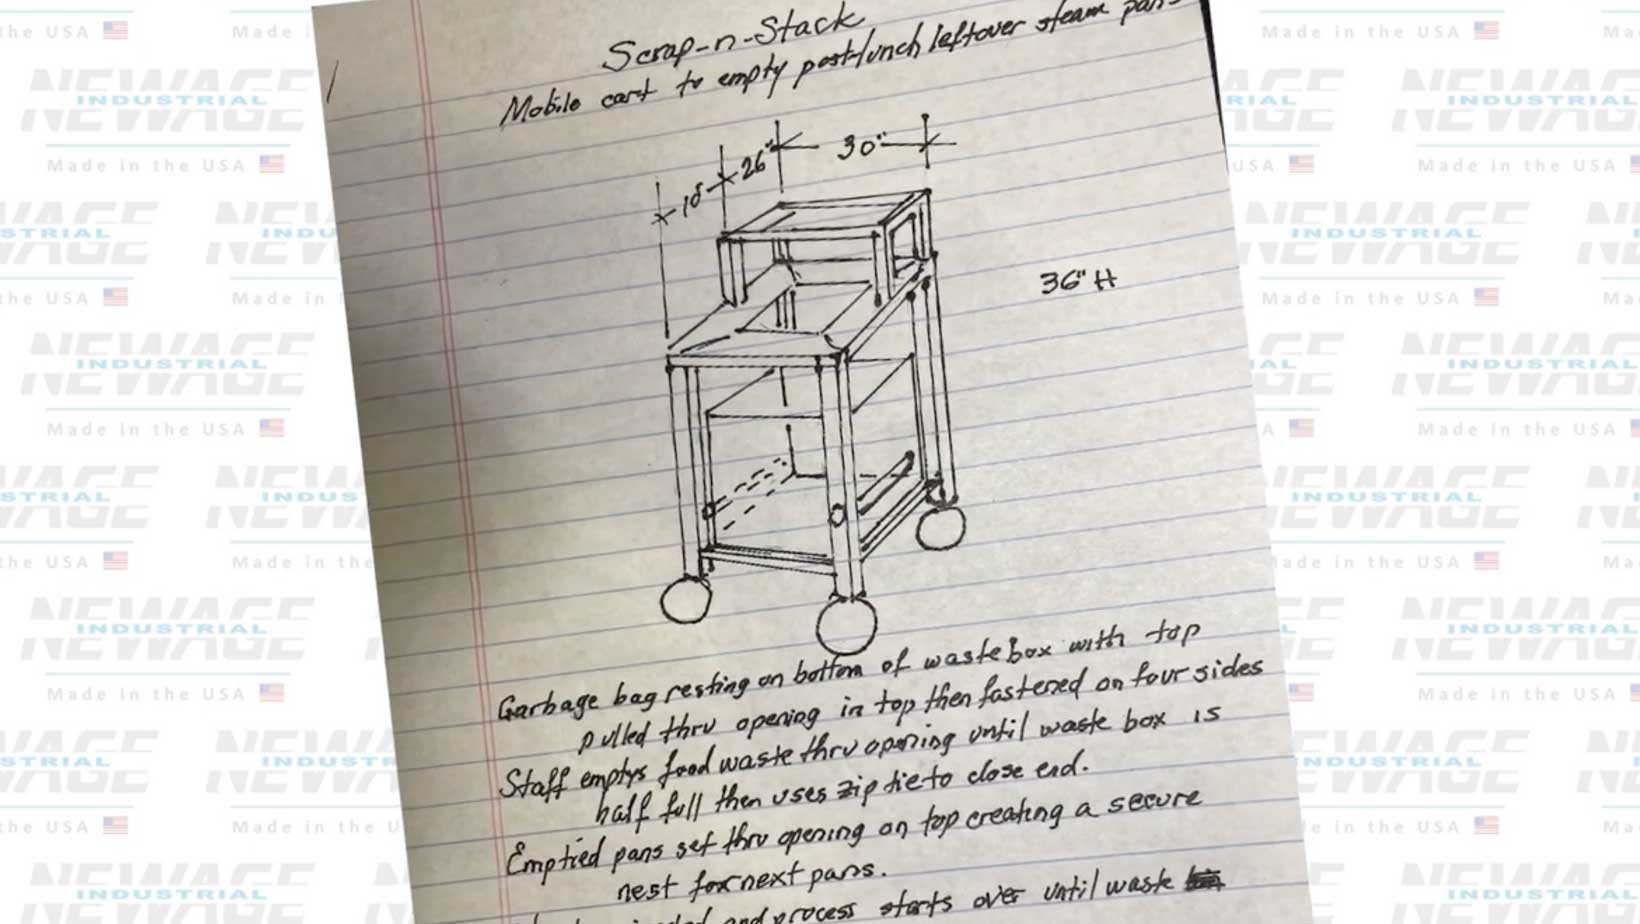 Scrap-n-Stack
Mobile cart to empty post-lunch leftover steam pans
10"
26"
30"
36" H
Garbage bag resting on bottom of waste box with top
pulled thru opening in top then fastened on four sides
Staff emptys food waste thru opening until waste box is
half full then uses zip tie to close end.
Emptied pans set thru opening on top creating a secure
nest for next pans.
and process starts over until waste
NEWAGE
INDUSTRIAL
Made in the USA